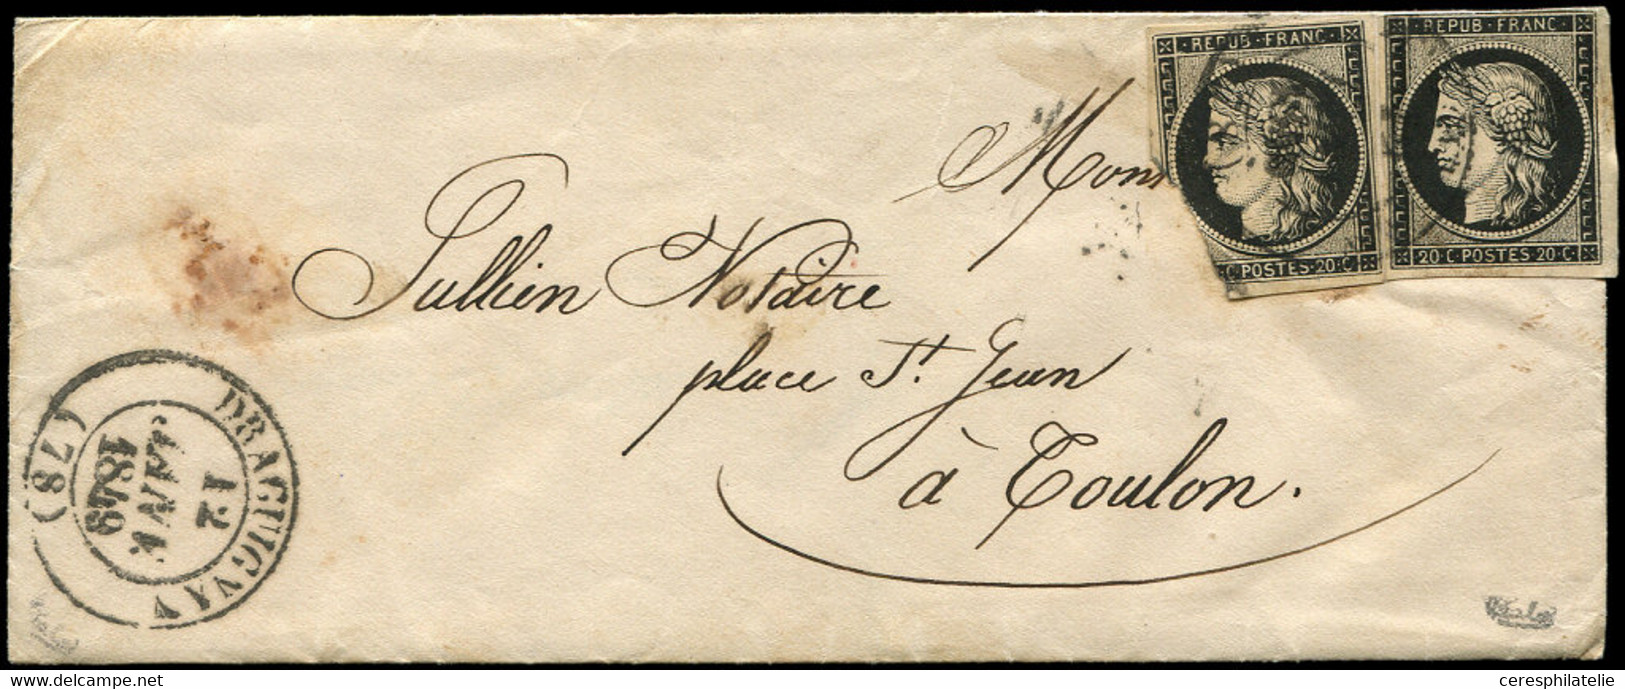 REPUB·FRANC·
REPUB·FRANC·
C·POSTES·20·C·
20·C·POSTES·20·C·
Jullien Notaire
place St. Jean
à Toulon.
DRAGUIGNAN
12
JANV.
1849
(78)
www.delcampe.net
ceresphilatelie